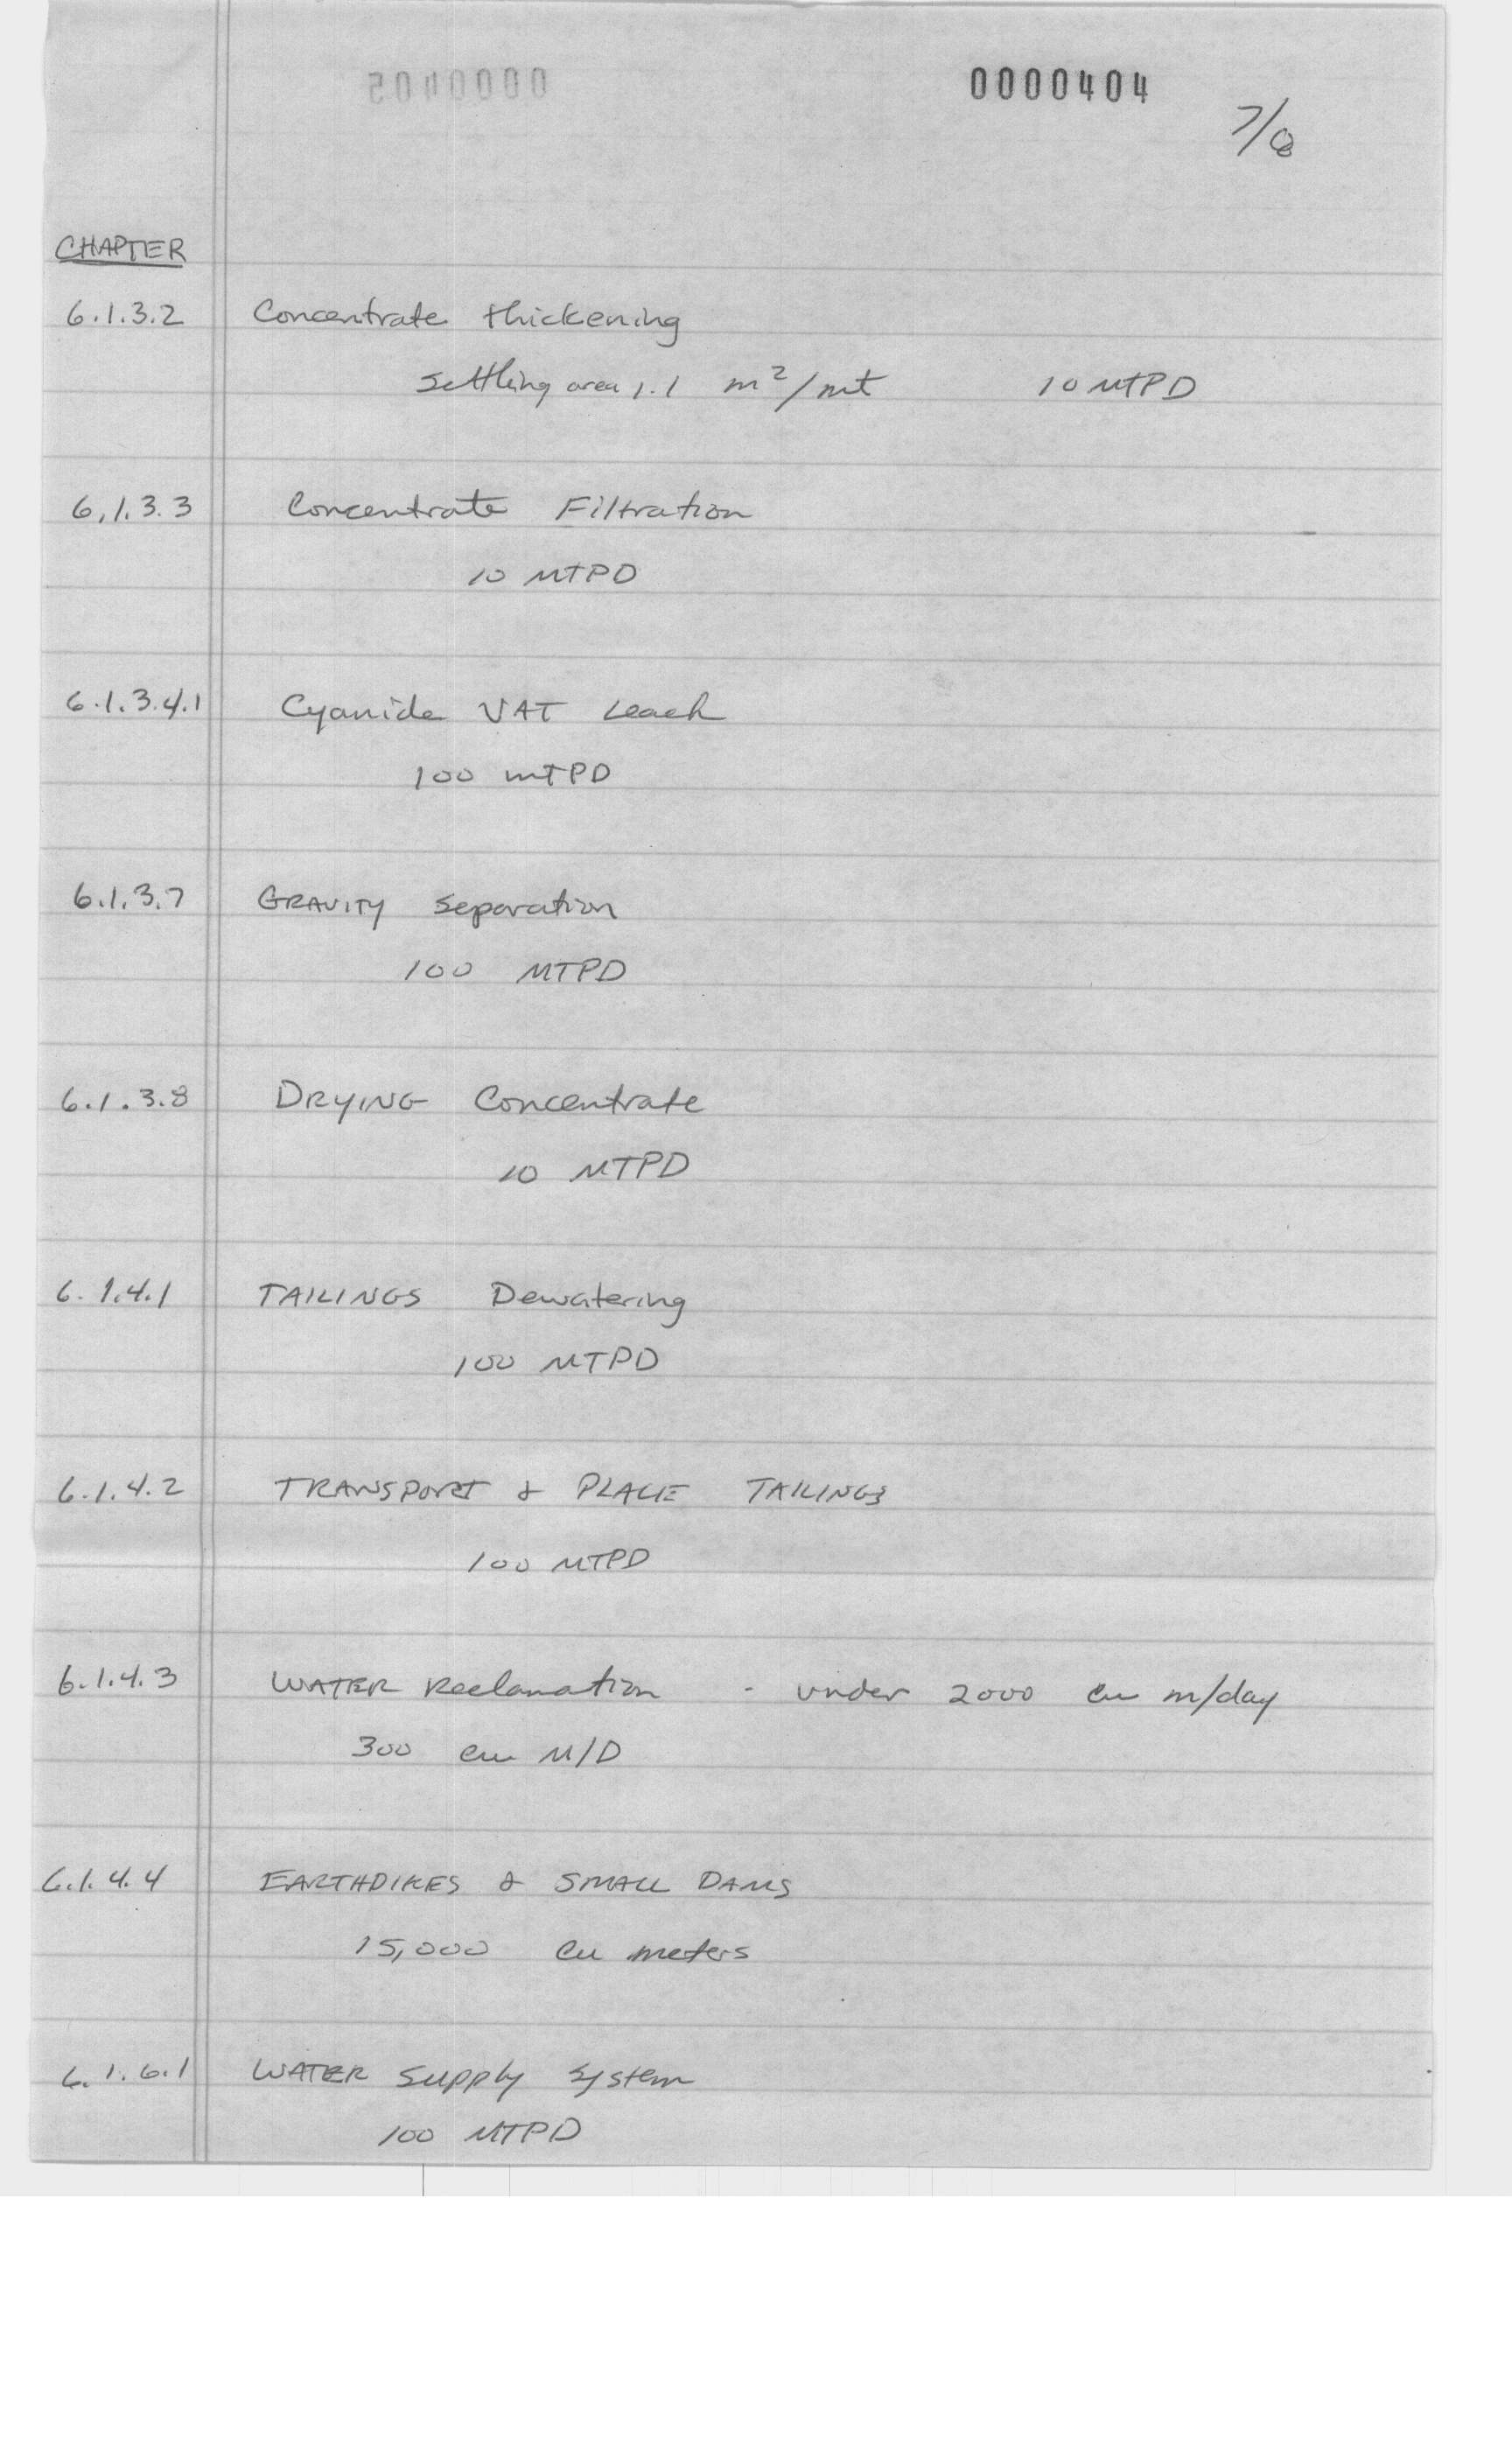 0000404
7/8
CHAPTER
6.1.3.2 Concentrate thickening
Settling area 1.1 m²/mt 10 MTPD
6.1.3.3 Concentrate Filtration
10 MTPD
6.1.3.4.1 Cyanide VAT Leach
100 mTPD
6.1.3.7 GRAVITY Separation
100 MTPD
6.1.3.8 DRYING Concentrate
10 MTPD
6.1.4.1 TAILINGS Dewatering
100 MTPD
6.1.4.2 TRANSPORT & PLACE TAILINGS
100 MTPD
6.1.4.3 WATER Reclamation - under 2000 cu m/day
300 cu M/D
6.1.4.4 EARTHDIKES & SMALL DAMS
15,000 Cu meters
6.1.6.1 WATER Supply System
100 MTPD